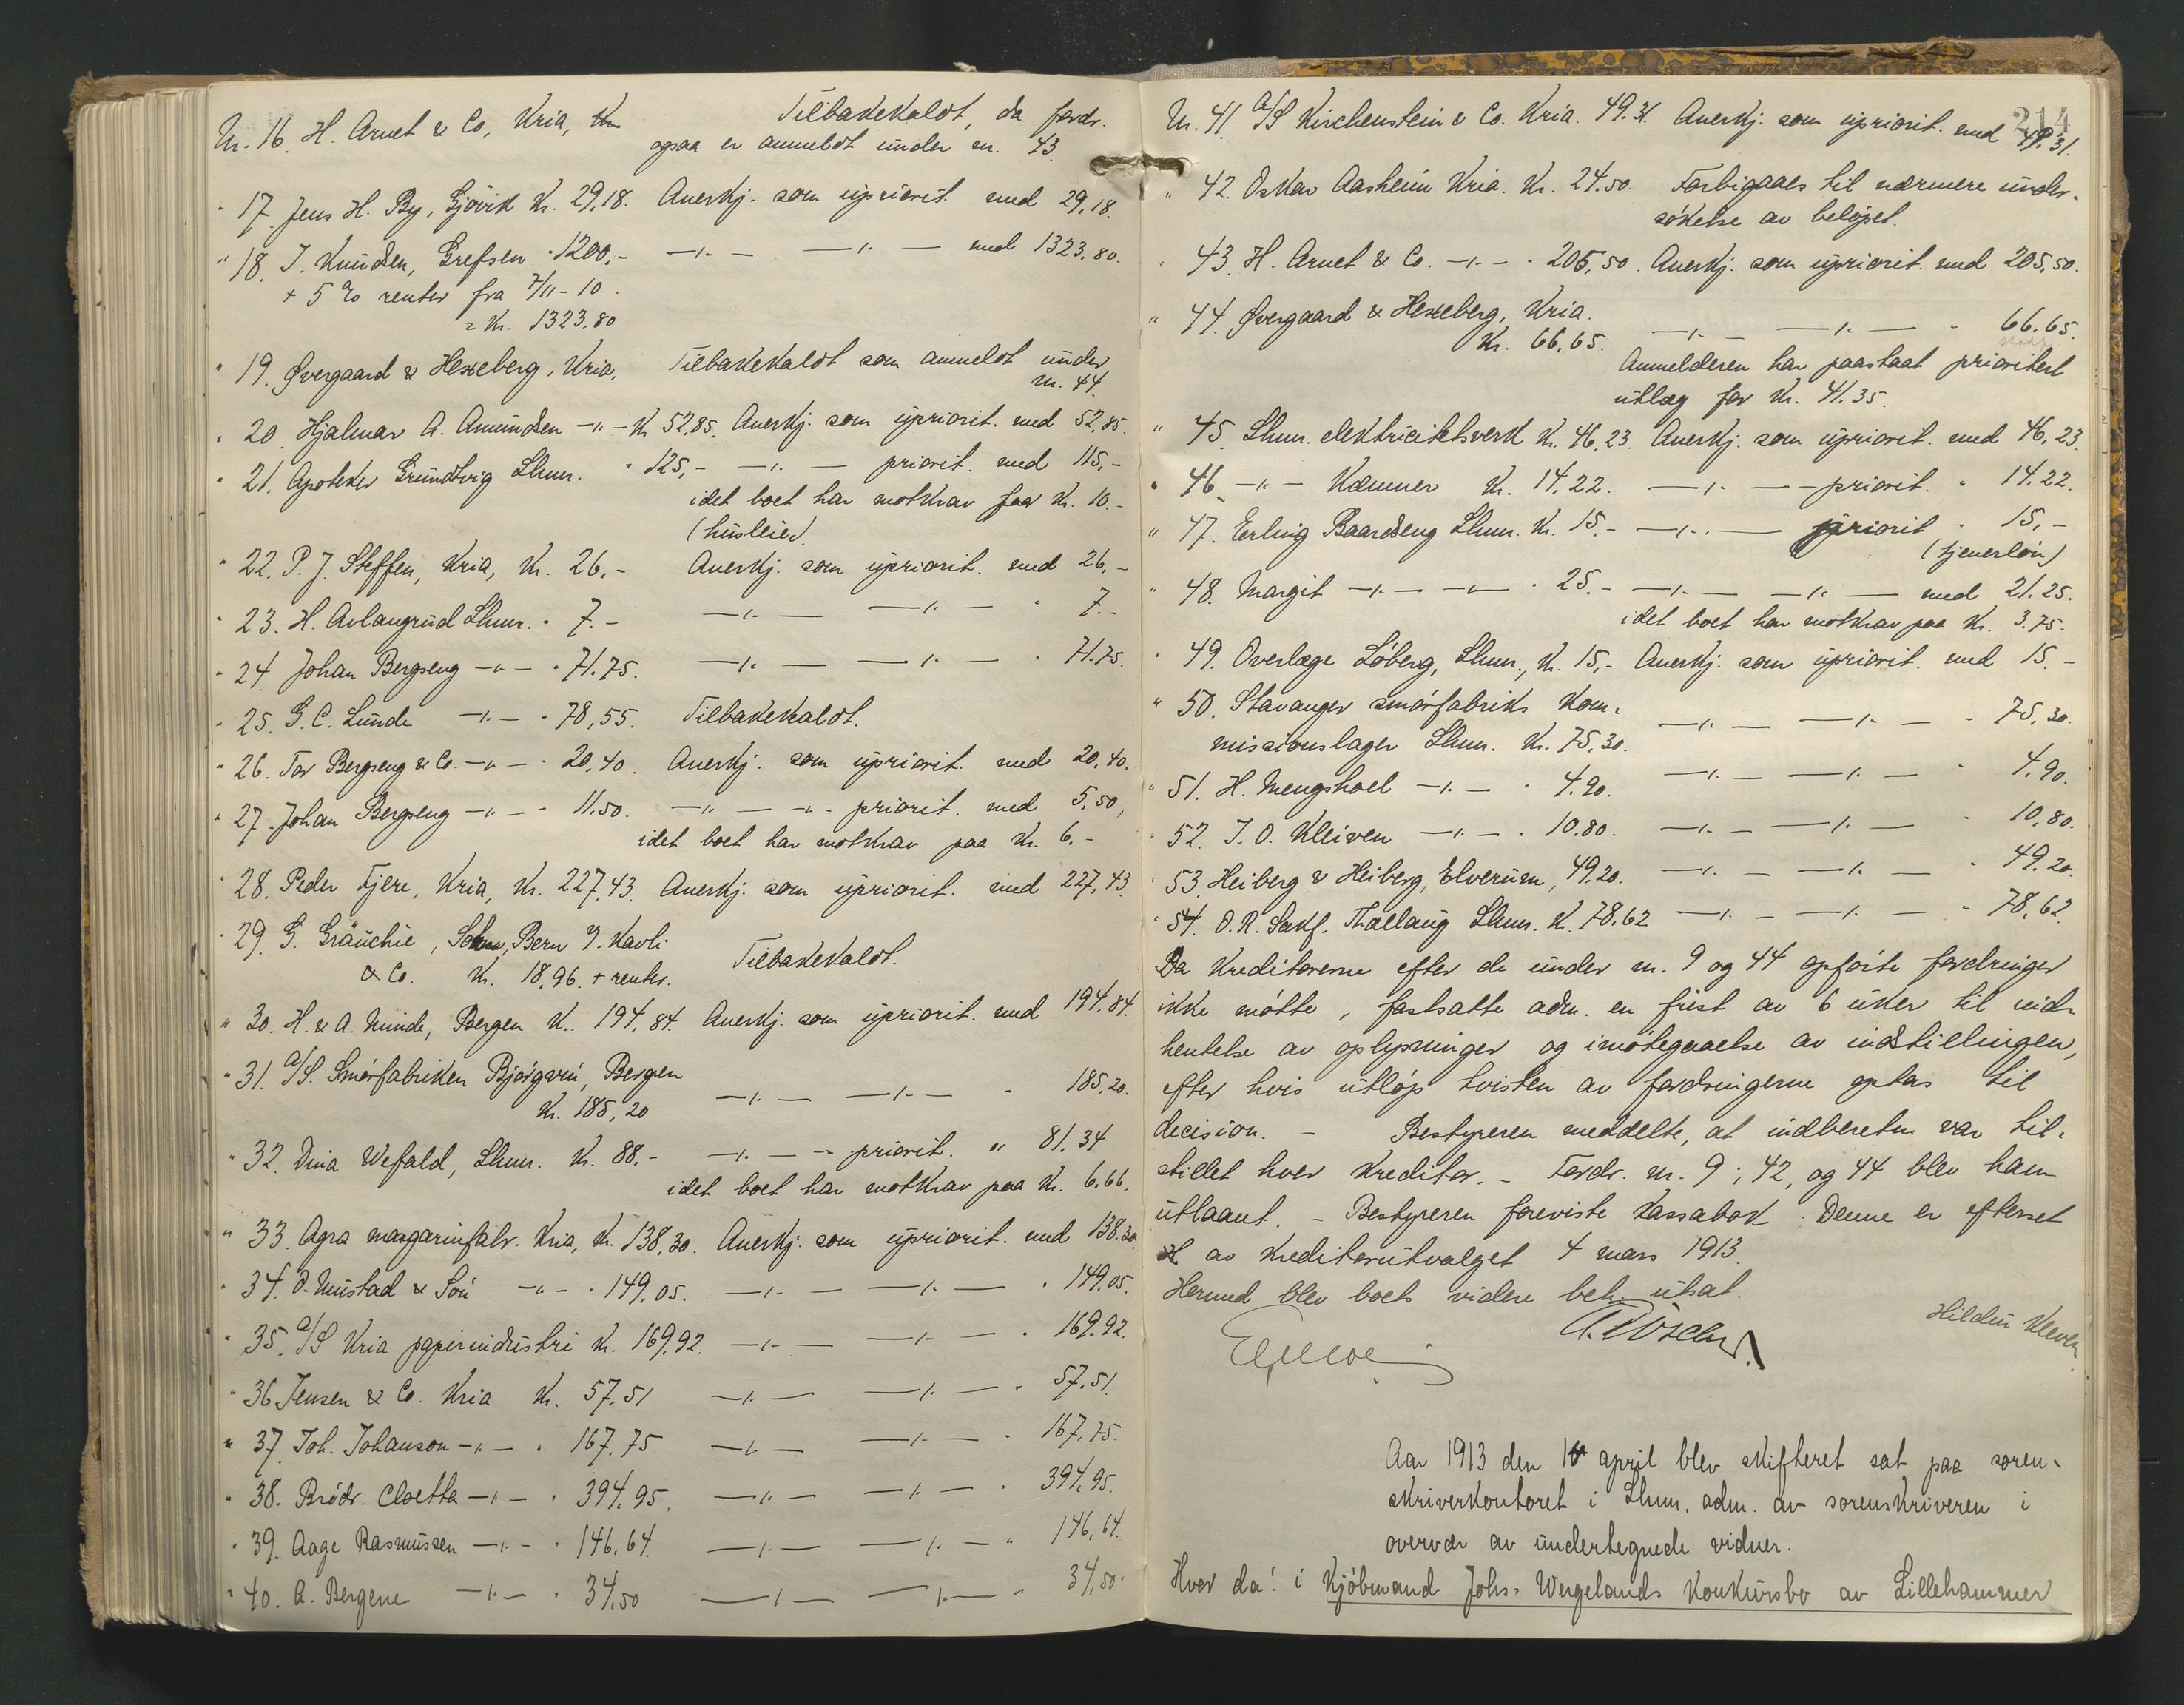 Nr. 16. H. Arnet & Co, Kria, Tilbakekaldt, da fordr.
ogsaa er anmeldt under nr. 43.
" 17. Jens H. By, Gjövik Kr. 29,18. Anerkj. som upriorit. med 29,18.
" 18. J. Knudsen, Grefsen " 1200,- —"— —"— med 1323.80.
+ 5 % renter fra 7/11-10.
= Kr. 1323.80
" 19. Øvergaard & Hesseberg, Kria, Tilbakekaldt som anmeldt under
nr. 44.
" 20. Hjalmar A. Amundsen —"— Kr 52,85. Anerkj. som upriorit. med 52,85.
" 21. Apoteker Grundtvig Lhmr. " 125,- —"— priorit. med 115,-
idet boet har motkrav paa Kr. 10.-
(husleie).
" 22. P. J. Steffen, Kria, Kr. 26,- Anerkj. som upriorit. med 26,-
" 23. H. Avlangrud Lhmr. " 7.- —"— —"— " 7.-
" 24. Johan Bergseng —"— " 71.75. —"— —"— " 71.75.
" 25. G. C. Lunde —"— " 78,55. Tilbakekaldt.
" 26. Tor Bergseng & Co. —"— " 20,40. Anerkj. som upriorit. med 20,40.
" 27. Johan Bergseng —"— " 11.50. —"— —"— priorit. med 5,50,
idet boet har motkrav paa Kr. 6.-
" 28. Peder Fjere, Kria, Kr. 227,43. Anerkj. som upriorit. med 227,43.
" 29. G. Gräuchie, Bern J. Kavli
& Co. Kr. 18,96. + renter. Tilbakekaldt.
" 30. H. & A. Minde, Bergen Kr. 194,84. Anerkj. som upriorit. med 194.84.
" 31. A/S. Smörfabriken Björgvin, Bergen
Kr. 185,20 —"— —"— " 185,20.
" 32. Dina Wefald, Lhmr. Kr. 88.- —"— —"— priorit. " 81,34
idet boet har motkrav paa Kr. 6.66.
" 33. Agra margarinfabr. Kria, Kr. 138,30. Anerkj. som upriorit. med 138.30.
" 34. O. Mustad & Sön —"— " 149,05. —"— —"— " 149.05.
" 35. A/S Kria papirindustri Kr. 169,92. —"— —"— " 169.92.
" 36 Jensen & Co. Kria Kr. 57,51 —"— —"— " 57.51.
" 37. Joh. Johanson —"— " 167,75 —"— —"— " 167,75.
" 38. Brödr. Cloetta —"— " 394,95. —"— —"— " 394,95.
" 39. Aage Rasmussen —"— " 146,64. —"— —"— " 146,64.
" 40. A. Bergene —"— " 34,50 —"— —"— " 34,50.
214
Nr. 41. A/S Kirchenstein & Co. Kria. 49.31. Anerkj. som upriorit. med 49.31.
" 42. Oskar Aasheim Kria. Kr. 24.50. Forbigaaes til nærmere under-
sökelse av belöpet.
" 43. H. Arnet & Co. —"— " 205,50. Anerkj. som upriorit. med 205,50.
" 44. Øvergaard & Hesseberg, Kria.
Kr. 66,65. —"— —"— " 66.65.
Anmelderen har paastaat prioritert
utlæg for Kr. 41.35.
" 45. Lhmr. elektricitetsverk Kr. 46,23. Anerkj. som upriorit. med 46,23.
" 46. —"— Kæmner Kr. 14,22. —"— — priorit. " 14.22.
" 47. Erling Baardseng Lhmr. Kr. 15.- —"— priorit " 15,-
(tjenerlön)
" 48. Margit —"— —"— " 25.- —"— —"— med 21.25.
idet boet har motkrav paa Kr. 3.75.
" 49. Overlæge Löberg, Lhmr., Kr. 15,- Anerkj. som upriorit. med 15.-
" 50. Stavanger smörfabriks kom-
missionslager Lhmr. Kr. 75,30. —"— —"— " 75,30.
" 51. H. Mengshoel —"— " 4.90. —"— —"— " 4.90.
" 52. J. O. Kleiven —"— " 10.80. —"— —"— " 10,80.
" 53. Heiberg & Heiberg, Elverum, 49,20. —"— —"— " 49.20.
" 54. O. R. Sakf. Thallaug Lhmr. Kr. 78.62 —"— —"— " 78,62.
Da kreditorerne efter de under nr. 9 og 44 opförte fordringer
ikke mötte, fastsatte adm. en frist av 6 uker til ind-
hentelse av oplysninger og imötegaaelse av indstillingen,
efter hvis utlöp tvisten av fordringerne optas til
decision. – Bestyreren meddelte, at indberetn. var til-
stillet hver kreditor. – Fordr. nr. 9, 42, og 44 blev ham
utlaant. – Bestyreren foreviste kassabok. Denne er efterset
av kreditorutvalget 4 mars 1913.
Hermed blev boets videre beh. utsat.
Aar 1913 den april blev skifteret sat paa soren-
skriverkontoret i Lhmr. adm. av sorenskriveren i
overvær av undertegnede vidner.
Hvor da: i Kjöbmand Johs. Wergelands Konkursbo av Lillehammer